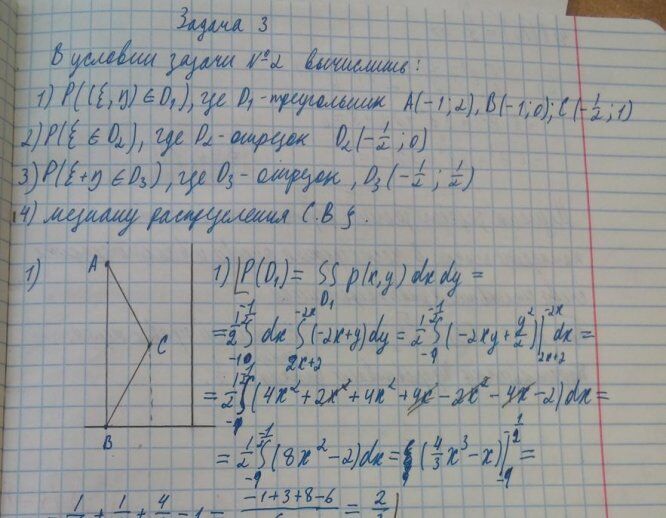 Задача 3
В условии задачи №2 вычислить:
1) P((ξ,η)∈D₁), где D₁-треугольник A(-1;2), B(-1;0); C(-1/2;1)
2) P(ξ∈D₂), где D₂-отрезок D₂(-1/2;0)
3) P(ξ+η∈D₃), где D₃-отрезок, D₃(-1/2;1/2)
4) медиану распределения С.В ξ.
1) A C B
1) P(D₁) = ∬ p(x,y) dx dy =
D₁
= 1/2 ∫ dx ∫ (-2x+y)dy = 1/2 ∫ (-2xy + y²/2)| dx =
= 1/2 ∫ (4x²+2x²+4x²+4x-2x²-4x-2)dx =
= 1/2 ∫ (8x²-2)dx = (4/3 x³-x)| =
-1+3+8-6